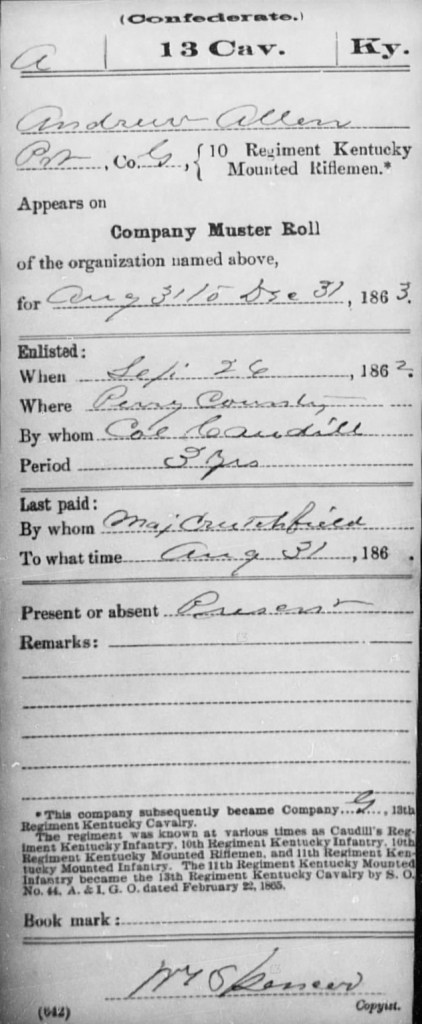 (Confederate.)
A | 13 Cav. | Ky.
Andrew Allen
Pvt, Co. G, { 10 Regiment Kentucky
Mounted Riflemen.*
Appears on
Company Muster Roll
of the organization named above,
for Aug 31 to Dec 31, 1863.
Enlisted:
When Sept 26, 1862.
Where Perry County
By whom Col Caudill
Period 3 yrs
Last paid:
By whom Maj Crutchfield
To what time Aug 31, 186 .
Present or absent Present
Remarks:
*This company subsequently became Company G, 13th
Regiment Kentucky Cavalry.
The regiment was known at various times as Caudill's Reg-
iment Kentucky Infantry, 10th Regiment Kentucky Infantry, 10th
Regiment Kentucky Mounted Riflemen, and 11th Regiment Ken-
tucky Mounted Infantry. The 11th Regiment Kentucky Mounted
Infantry became the 13th Regiment Kentucky Cavalry by S. O.
No. 44, A. & I. G. O. dated February 22, 1865.
Book mark:
Spencer
(642) Copyist.